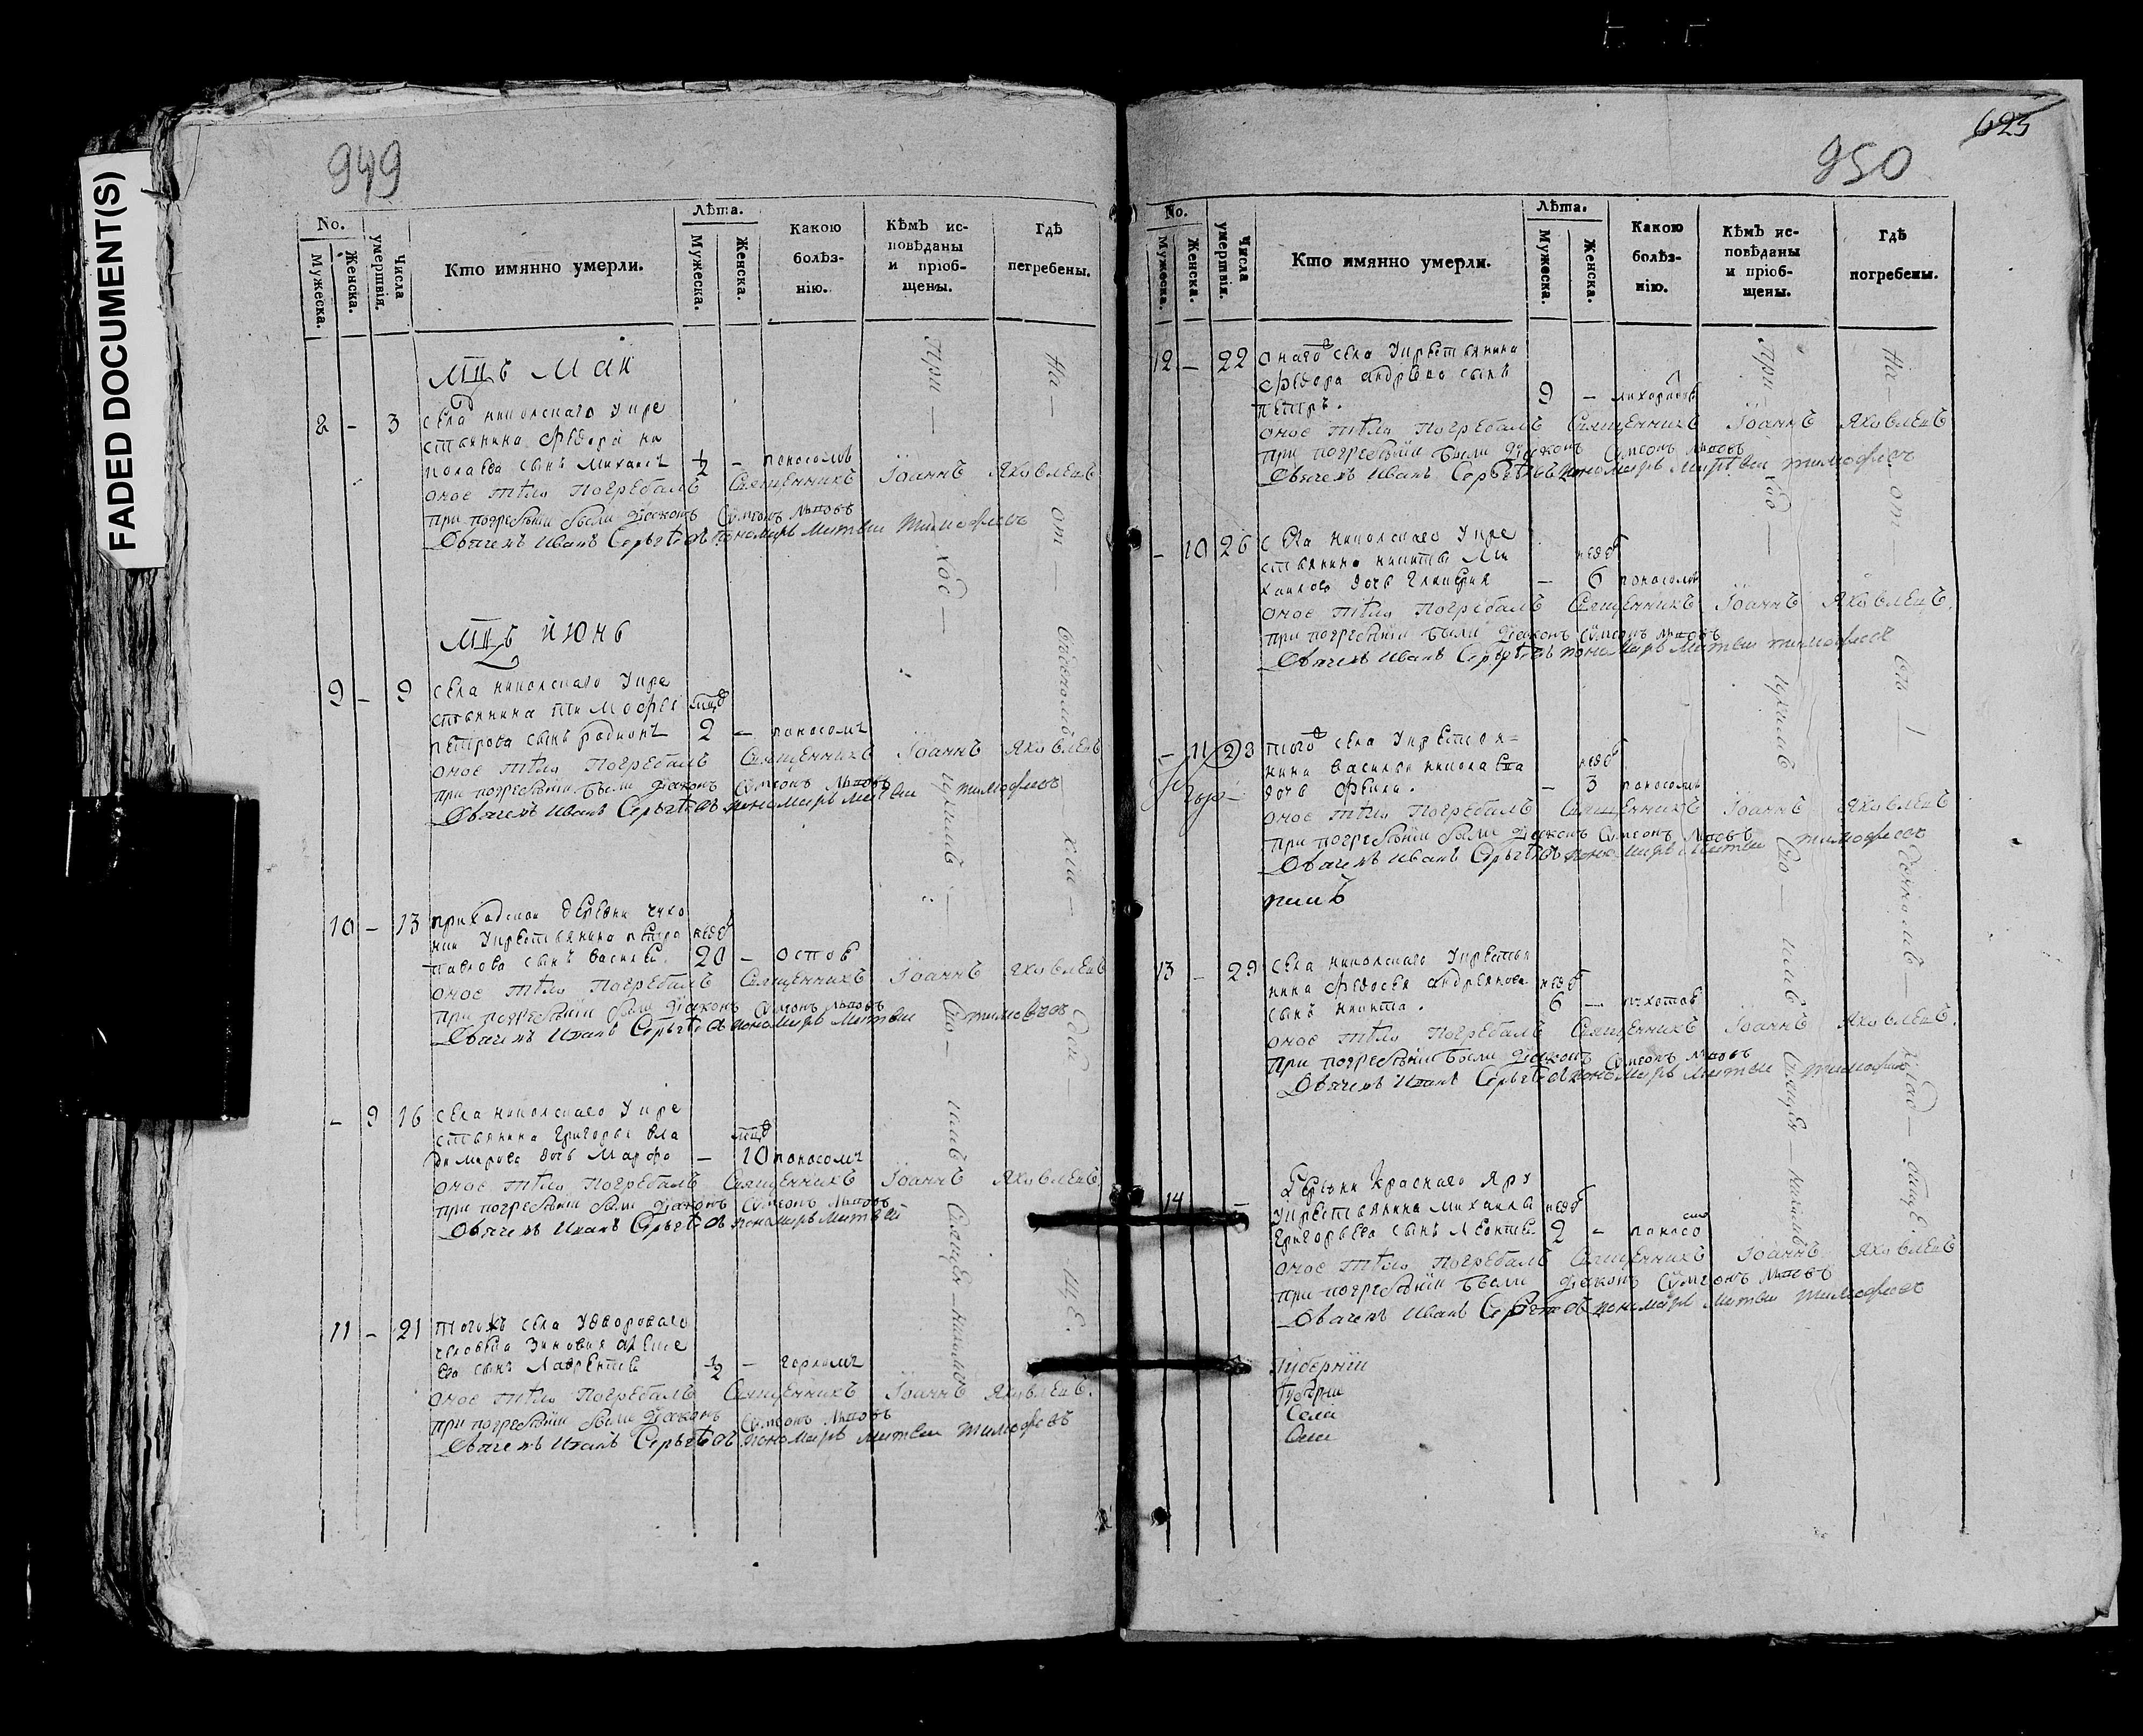 FADED DOCUMENT(S)
949
No.
Мужеска.
Женска.
Числа умертвія.
Кто имянно умерли.
Лѣта.
Мужеска.
Женска.
Какою болѣз-
нію.
Кѣмъ ис-
повѣданы
и пріоб-
щены.
Гдѣ
погребены.
Мцъ Маи
8 - 3 села николскаго У кре
стьянина Федора ни
колаева сынъ Михаилъ ½ - поносомъ
оное тѣло погребалъ Священникъ Іоаннъ Яковлевъ
при погребѣніи были діаконъ Сумеонъ
дьячекъ Иванъ Сергѣевъ пономарь Матвеи тимофеевъ
Мцъ июнь
9 - 9 села николскаго У кре
стьянина тимофея мцовъ
петрова сынъ родионъ 2 - поносомъ
оное тѣло погребалъ Священникъ Іоаннъ Яковлевъ
при погребѣніи были діаконъ Сумеонъ
дьячекъ Иванъ Сергѣевъ пономарь Матвеи тимофеевъ
10 - 13 приходской деревни
У крестьянина петра недѣ
павлова сынъ василеи. 20 - оспою
оное тѣло погребалъ Священникъ Іоаннъ Яковлевъ
при погребѣніи были діаконъ Сумеонъ
дьячекъ Иванъ Сергѣевъ пономарь Матвеи тимофеевъ
- 9 16 села николскаго У кре
стьянина Григорья вла мцо
димерова дочь Марфа - 10 поносомъ
оное тѣло погребалъ Священникъ Іоаннъ Яковлевъ
при погребѣніи были діаконъ Сумеонъ
дьячекъ Иванъ Сергѣевъ пономарь Матвѣй
11 - 21 тогожъ села У двороваго
человека Зиновия алексе
ева сынъ Лаврентеи ½ - горломъ
оное тѣло погребалъ Священникъ Іоаннъ Яковлевъ.
при погребѣніи были діаконъ Сумеонъ
дьячекъ Иванъ Сергѣевъ пономарь Матвеи тимофеевъ
625
950
No.
Мужеска.
Женска.
Числа умертвія.
Кто имянно умерли.
Лѣта.
Мужеска.
Женска.
Какою
болѣз-
нію.
Кѣмъ ис-
повѣданы
и пріоб-
щены.
Гдѣ
погребены.
12 - 22 онаго села У крестьянина
Федора андрѣева сынъ
петръ. 9 - лихорадкою
оное тѣло погребалъ Священникъ Іоаннъ Яковлевъ
при погребѣніи были діаконъ Сумеонъ
дьячекъ Иванъ Сергѣевъ пономарь Матвеи тимофеевъ
- 10 26 села николскаго У кре
стьянина никиты Ми недѣ
хаилова дочь Гликерия - 6 поносомъ
оное тѣло погребалъ Священникъ Іоаннъ Яковлевъ.
при погребѣніи были діаконъ Сумеонъ
дьячекъ Иванъ Сергѣевъ пономарь Матвеи тимофеевъ
- 11 23 того села У крестья=
нина василья николаева недѣ
дочь Фекла. - 3 поносомъ
оное тѣло погребалъ Священникъ Іоаннъ Яковлевъ
при погребѣніи были діаконъ Сумеонъ
дьячекъ Иванъ Сергѣевъ пономарь Матвеи тимофеевъ
13 - 29 села николскаго У крестья
нина Федосея андреянова недѣ
сынъ никита. 6 -
оное тѣло погребалъ Священникъ Іоаннъ Яковлевъ.
при погребѣніи были діаконъ Сумеонъ
дьячекъ Иванъ Сергѣевъ пономарь Матвеи тимофеевъ
14 - Деревни Краснаго Яру
У крестьянина михаилы недѣ
григорьева сынъ Леонтеи 2 - поносо
оное тѣло погребалъ Священникъ Іоаннъ Яковлевъ
при погребѣніи были діаконъ Сумеонъ
дьячекъ Иванъ Сергѣевъ пономарь Матвеи тимофеевъ
Губерніи
Села